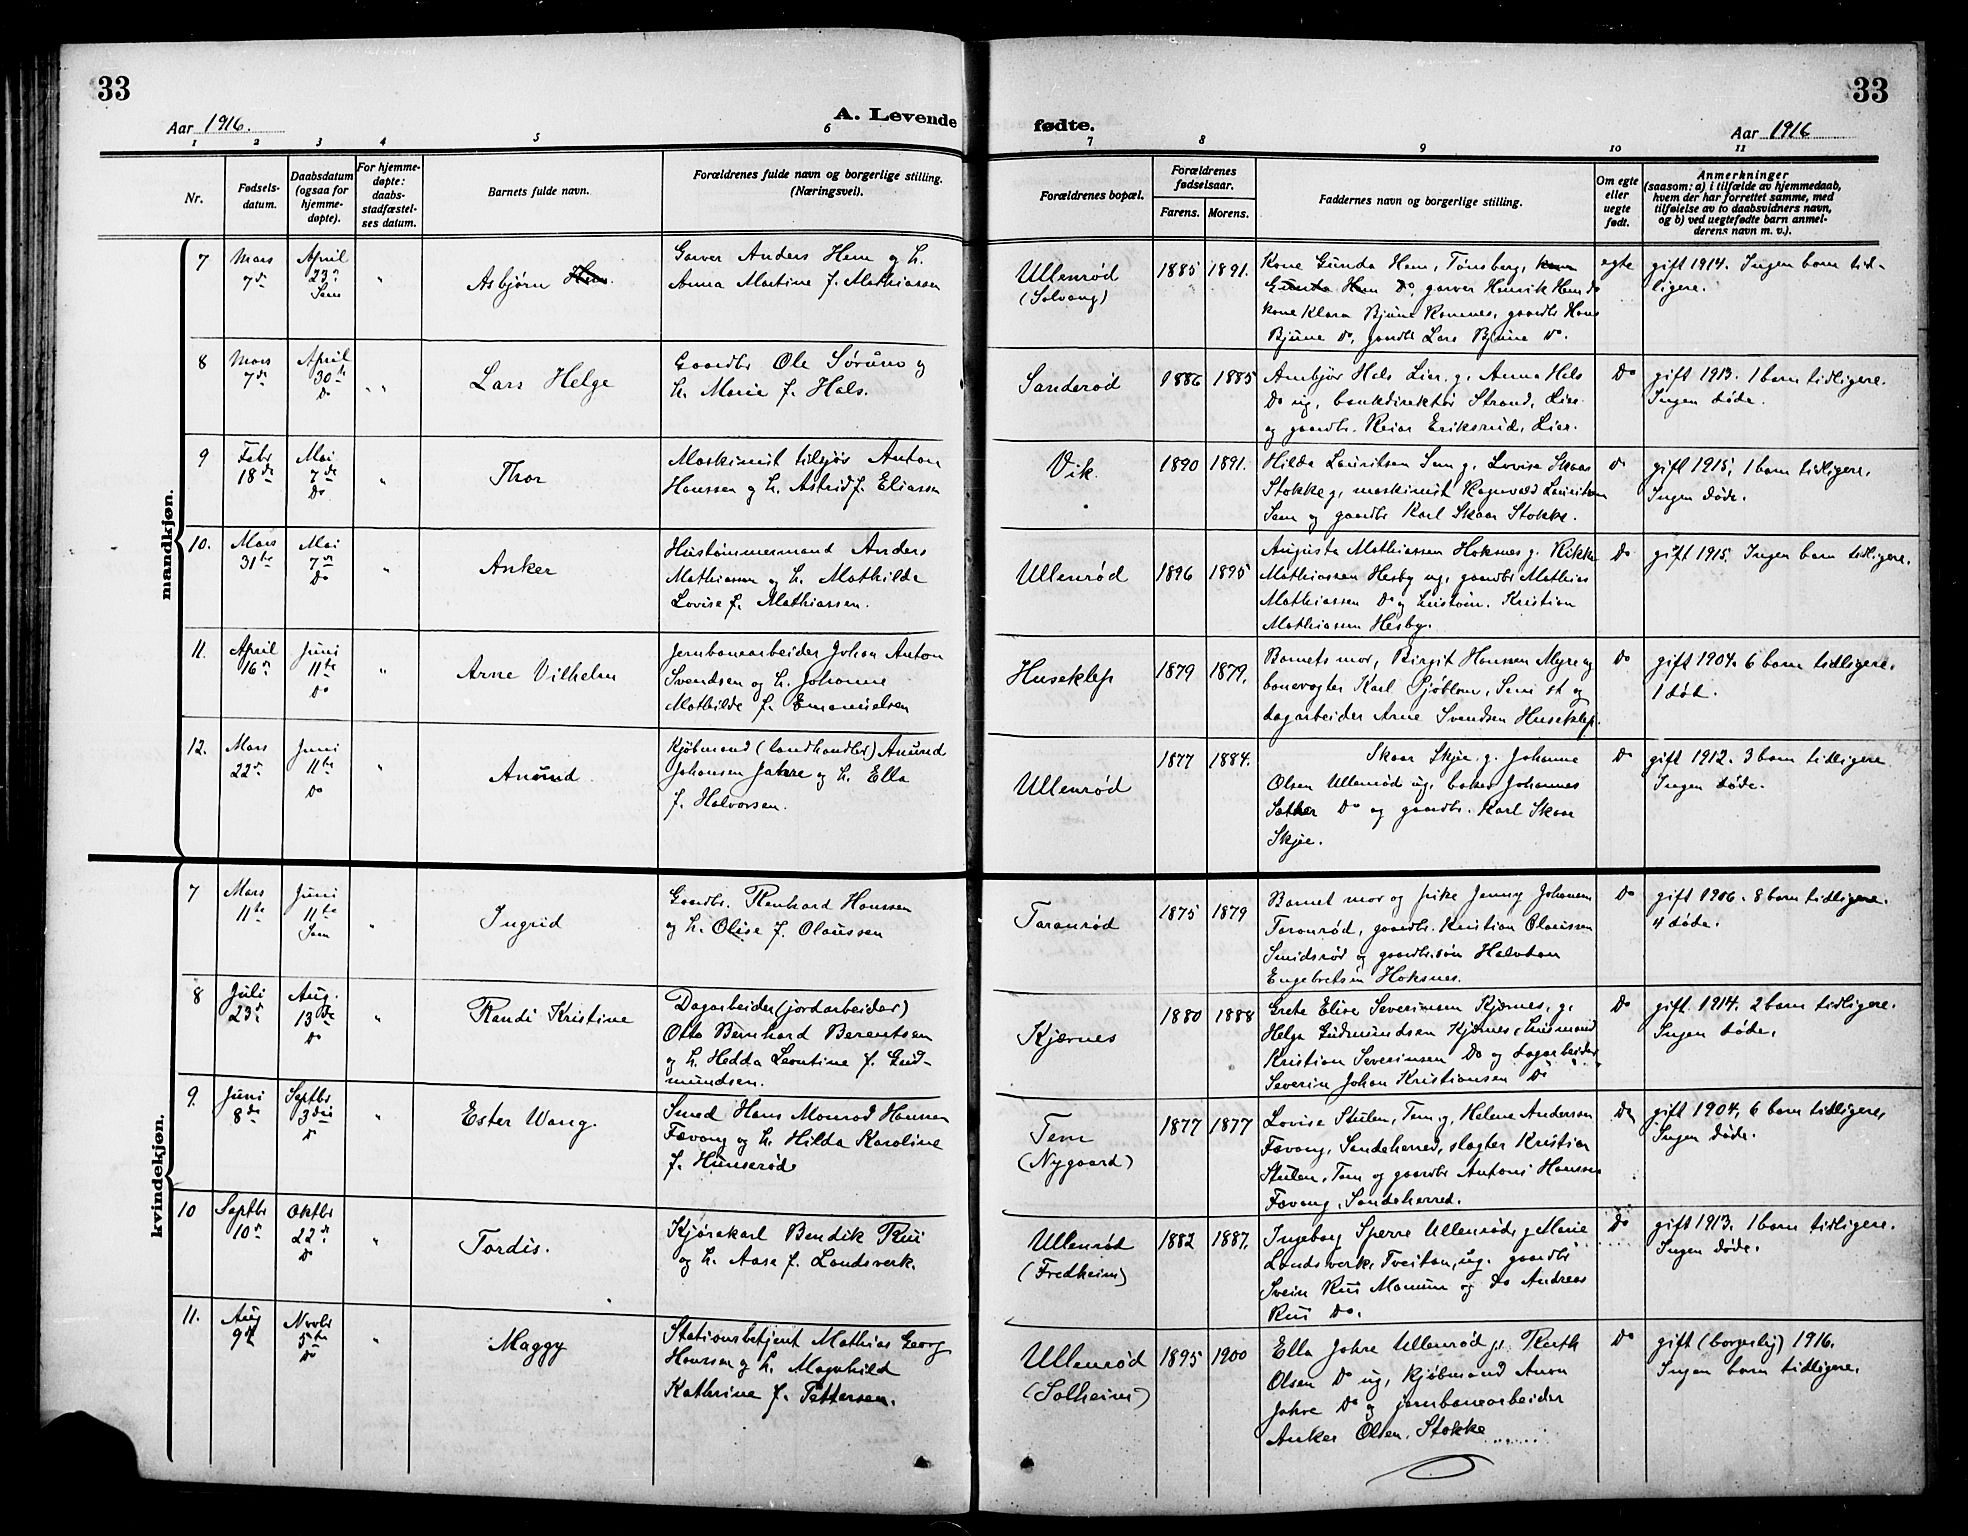 33
33
Aar 1916.
A. Levende
fødte.
Aar 1916
1 2 3 4 5 6
7 8 9 10 11
Nr.
Fødsels-
datum.
Daabsdatum
(ogsaa for
hjemme-
døpte).
For hjemme-
døpte:
daabs-
stadfæstel-
ses datum.
Barnets fulde navn.
Forældrenes fulde navn og borgerlige stilling.
(Næringsvei).
Forældrenes bopæl.
Forældrenes
fødselsaar.
Farens. Morens.
Faddernes navn og borgerlige stilling.
Om egte
eller
uegte
født.
Anmerkninger
(saasom: a) i tilfælde av hjemmedaab,
hvem der har forrettet samme, med
tilføielse av to daabsvidners navn,
og b) ved uegtefødte barn anmel-
derens navn m. v.).
mandkjøn.
7
Mars
7de
April
23de
Sem
"
Asbjørn Hem
Garver Anders Hem og h.
Anna Martine f. Mathiassen
Ullenrød
(Solvang)
1885 1891.
Kone Gunda Hem, Tønsberg, kone
Gunda Hem Do, garver Henrik Hem do
kone Klara Bjune Ramnes, gaardbr Hans
Bjune Do, gaardbr Lars Bjune Do.
egte
gift 1914. Ingen barn tid-
ligere.
8
Mars
7de
April
30te
Do
"
Lars Helge
Gaardbr Ole Sørum og
h. Marie f. Hals.
Sanderød
1886 1885
Hals Lier. g. Anna Hals
Do ug, bankdirektør Strand, Lier
og gaardbr. Reiar Eriksrud, Lier.
Do
gift 1913. 1 barn tidligere.
Ingen døde.
9
Febr
18de
Mai
7de
Do
"
Thor
Maskinist tilsjøs Anton
Hanssen og h. Astrid f. Eliassen
Vik.
1890 1891.
Hilda Lauritsen Sem g. Lovise Skaar
Stokke g, maskinist Ragnvald Lauritsen
Sem og gaardbr Karl Skaar Stokke.
Do
gift 1915. 1 barn tidligere.
Ingen døde.
10.
Mars
31te
Mai
7de
Do
"
Anker
Hustømmermand Anders
Mathiassen og h. Mathilde
Lovise f. Mathiassen.
Ullenrød
1896 1895
Augusta Mathiassen Hoksnes g. Rikka
Mathiassen Hesby ug, gaardbr Mathias
Mathiassen Do og hustøm. Kristian
Mathiassen Hesby.
Do
gift 1915. Ingen barn tidligere.
11.
April
16de
Juni
11te
Do
"
Arne Vilhelm
Jernbanearbeider Johan Anton
Svendsen og h. Johanne
Mathilde f. Emanuelsen
Huseklep
1879 1879.
Barnets mor, Birgit Hanssen Myre og
banevogter Karl Sjøblom, Sem st og
dagarbeider Arne Svendsen Huseklep.
Do
gift 1904. 6 barn tidligere.
1 død.
12.
Mars
22de
Juni
11te
Do
"
Anund
Kjøbmand (landhandler) Anund
Johansen Jahre og h. Ella
f. Halvorsen.
Ullenrød
1877 1884.
Skaar Skjee. g. Johanne
Olsen Ullenrød ug, baker Johannes
Sæther Do og gaardbr. Karl Skaar
Skjee.
Do
gift 1912. 3 barn tidligere
Ingen døde.
kvindekjøn.
7
Mars
11te
Juni
11te
Sem
"
Ingrid
Gaardbr. Reinhard Hanssen
og h. Olise f. Olaussen
Taranrød
1875 1879
Barnet mor og pike Jenny Johansen
Taranrød, gaardbr. Kristian Olaussen
Smidsrød og gaardbr.søn Halvdan
Engebretsen Hoksnes.
Do
gift 1906. 8 barn tidligere.
4 døde.
8
Juli
23de
Aug.
13de
Do
"
Randi Kristine
Dagarbeider (jordarbeider)
Otto Bernhard Berentsen
og h. Hedda Leontine f. Gud-
mundsen.
Kjærnes
1880 1888
Grete Elise Severinsen Kjærnes, g.
Helga Gudmundsen Kjærnes, husmand
Kristian Severinsen Do og dagarbeider
Severin Johan Kristiansen Do
Do
gift 1914. 2 barn tidligere.
Ingen døde.
9.
Juni
8de
Septbr
3die
Do
"
Ester Wang.
Smed Hans Monrad Hansen
Fævang og h. Hilda Karoline
f. Hunserød
Tem
(Nygaard)
1877 1877
Lovise Stulen, Tem g, Helene Andersen
Fævang, Sandeherred, slagter Kristian
Stulen, Tem og gaardbr Antoni Hanssen
Fævang, Sandeherred.
Do
gift 1904. 6 barn tidligere,
Ingen døde.
10
Septbr
10de
Oktbr
22de
Do
"
Tordis.
Kjørekarl Bendik Rui
og h. Aasa f. Landsverk.
Ullenrød
(Fredheim)
1882 1887.
Ingeborg Sperre Ullenrød, g Marie
Landsverk, Tveitan, ug. gaardbr
Svein Rui Manum og do Andreas
Rui Do.
Do
gift 1913. 1 barn tidligere.
Ingen døde.
11.
Aug
9de
Novbr
5te
Do
"
Maggy
Stationsbetjent Mathias Georg
Hanssen og h. Magnhild
Kathrine f. Pettersen.
Ullenrød
(Solheim)
1895 1900
Ella Jahre Ullenrød g.
Olsen Do ug, Kjøbmand Anon
Jahre Do og jernbanearbeider
Anker Olsen, Stokke
Do
gift (borgerlig) 1916.
Ingen barn tidligere.